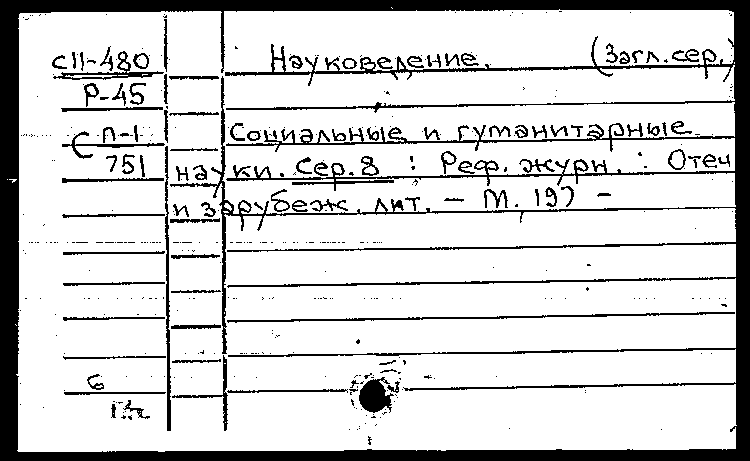 СII-480 Науковедение. (Загл.сер.)
Р-45
С п-1 Социальные и гуманитарные
751 науки. Сер.8 : Реф. журн. : Отеч
и зарубеж. лит. — М, 197 -
6